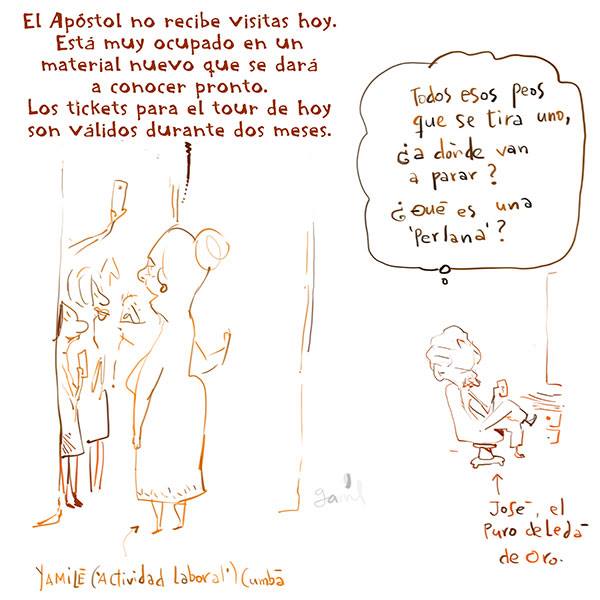 El Apóstol no recibe visitas hoy.
Está muy ocupado en un
material nuevo que se dará
a conocer pronto.
Los tickets para el tour de hoy
son válidos durante dos meses.
Todos esos peos
que se tira uno,
¿a dónde van
a parar?
¿Qué es una
'Perlana'?
José, el
Puro de Leda
de Oro.
YAMILÉ ('Actividad Laboral') Cumbá